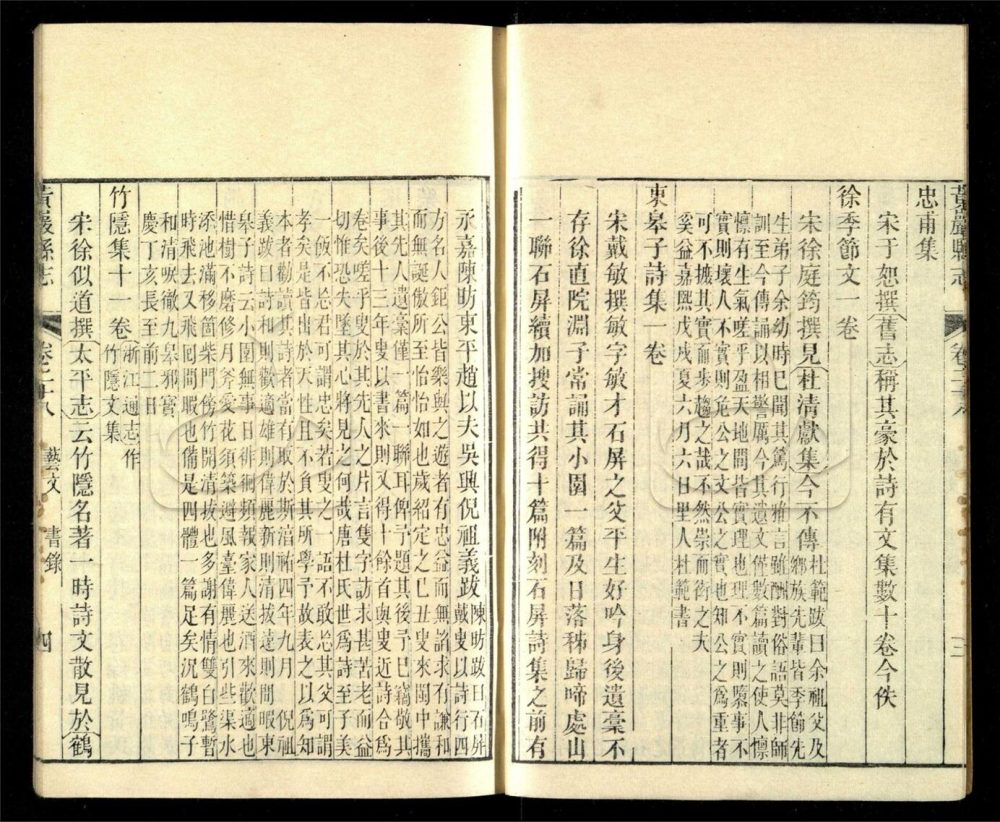 黃巖縣志
忠甫集
宋于恕撰舊志稱其豪於詩有文集數十卷今佚
徐季節文一卷
宋徐庭筠撰見杜清獻集今不傳
杜範跋曰余祖父及
鄉族先輩皆季節先
生弟子余幼時已聞其篤行雅言雖酬對俗語莫非師
訓至今傳誦以相警厲今其遺文僅數篇讀之使人懍
懍有生氣嗟乎盈天地間皆實理也地理不實則隳事不
實則壞人不實則危公之文公之實也知公之為重者
可不摭其實而步趨之哉不然崇而銜之大
奚益嘉熙戊戌夏六月六日里人杜範書
東皋子詩集一卷
宋戴敏撰敏字敏才石屏之父平生好吟身後遺稾不
存徐直院淵子常誦其小園一篇及日落秭歸啼處山
一聯石屏續加搜訪共得十篇附刻石屏詩集之前有
三
永嘉陳昉東平趙以夫吳興倪祖義跋
陳昉跋曰石屏
戴叟以詩行四
方名人鉅公皆樂與之遊者有忠益而無諂求有謙和
而無誕傲所至怡怡如也歲紹定之己丑叟來閩中攜
其先人遺稾僅一篇一聯耳俾予題其後予已竊敬其
事後十三年叟以書來則又得十餘首與叟近詩合為
卷矣嗟乎叟於其先人之片言隻字訪求甚苦老而益
切惟恐失墜其心將見之何哉唐杜氏世為詩至子美
一飯不忘君可謂忠矣若叟之一語不敢忘其父可謂
孝矣是皆出於天性且不負其所學予故表之以為知
本者勸讀其詩者當有取於斯淳祐四年九月 倪祖
義跋曰詩和則歡適雄則偉麗新則清拔遠則閒暇東
皋子詩云小園無事日徘徊頻報家人送酒來歡適也
惜樹不磨修月斧愛花須築避風臺偉麗也引些渠水
添池滿移箇柴門傍竹開清拔也多謝有情雙白鷺暫
時飛去又飛回閒暇也備是四體一篇足矣況鶴鳴子
和清唳徹九皋邪寶
慶丁亥長至前二日
竹隱集十一卷
浙江通志作
竹隱文集
宋徐似道撰太平志云竹隱名著一時詩文散見於鶴
黃巖縣志
卷二十八
藝文
書錄
四